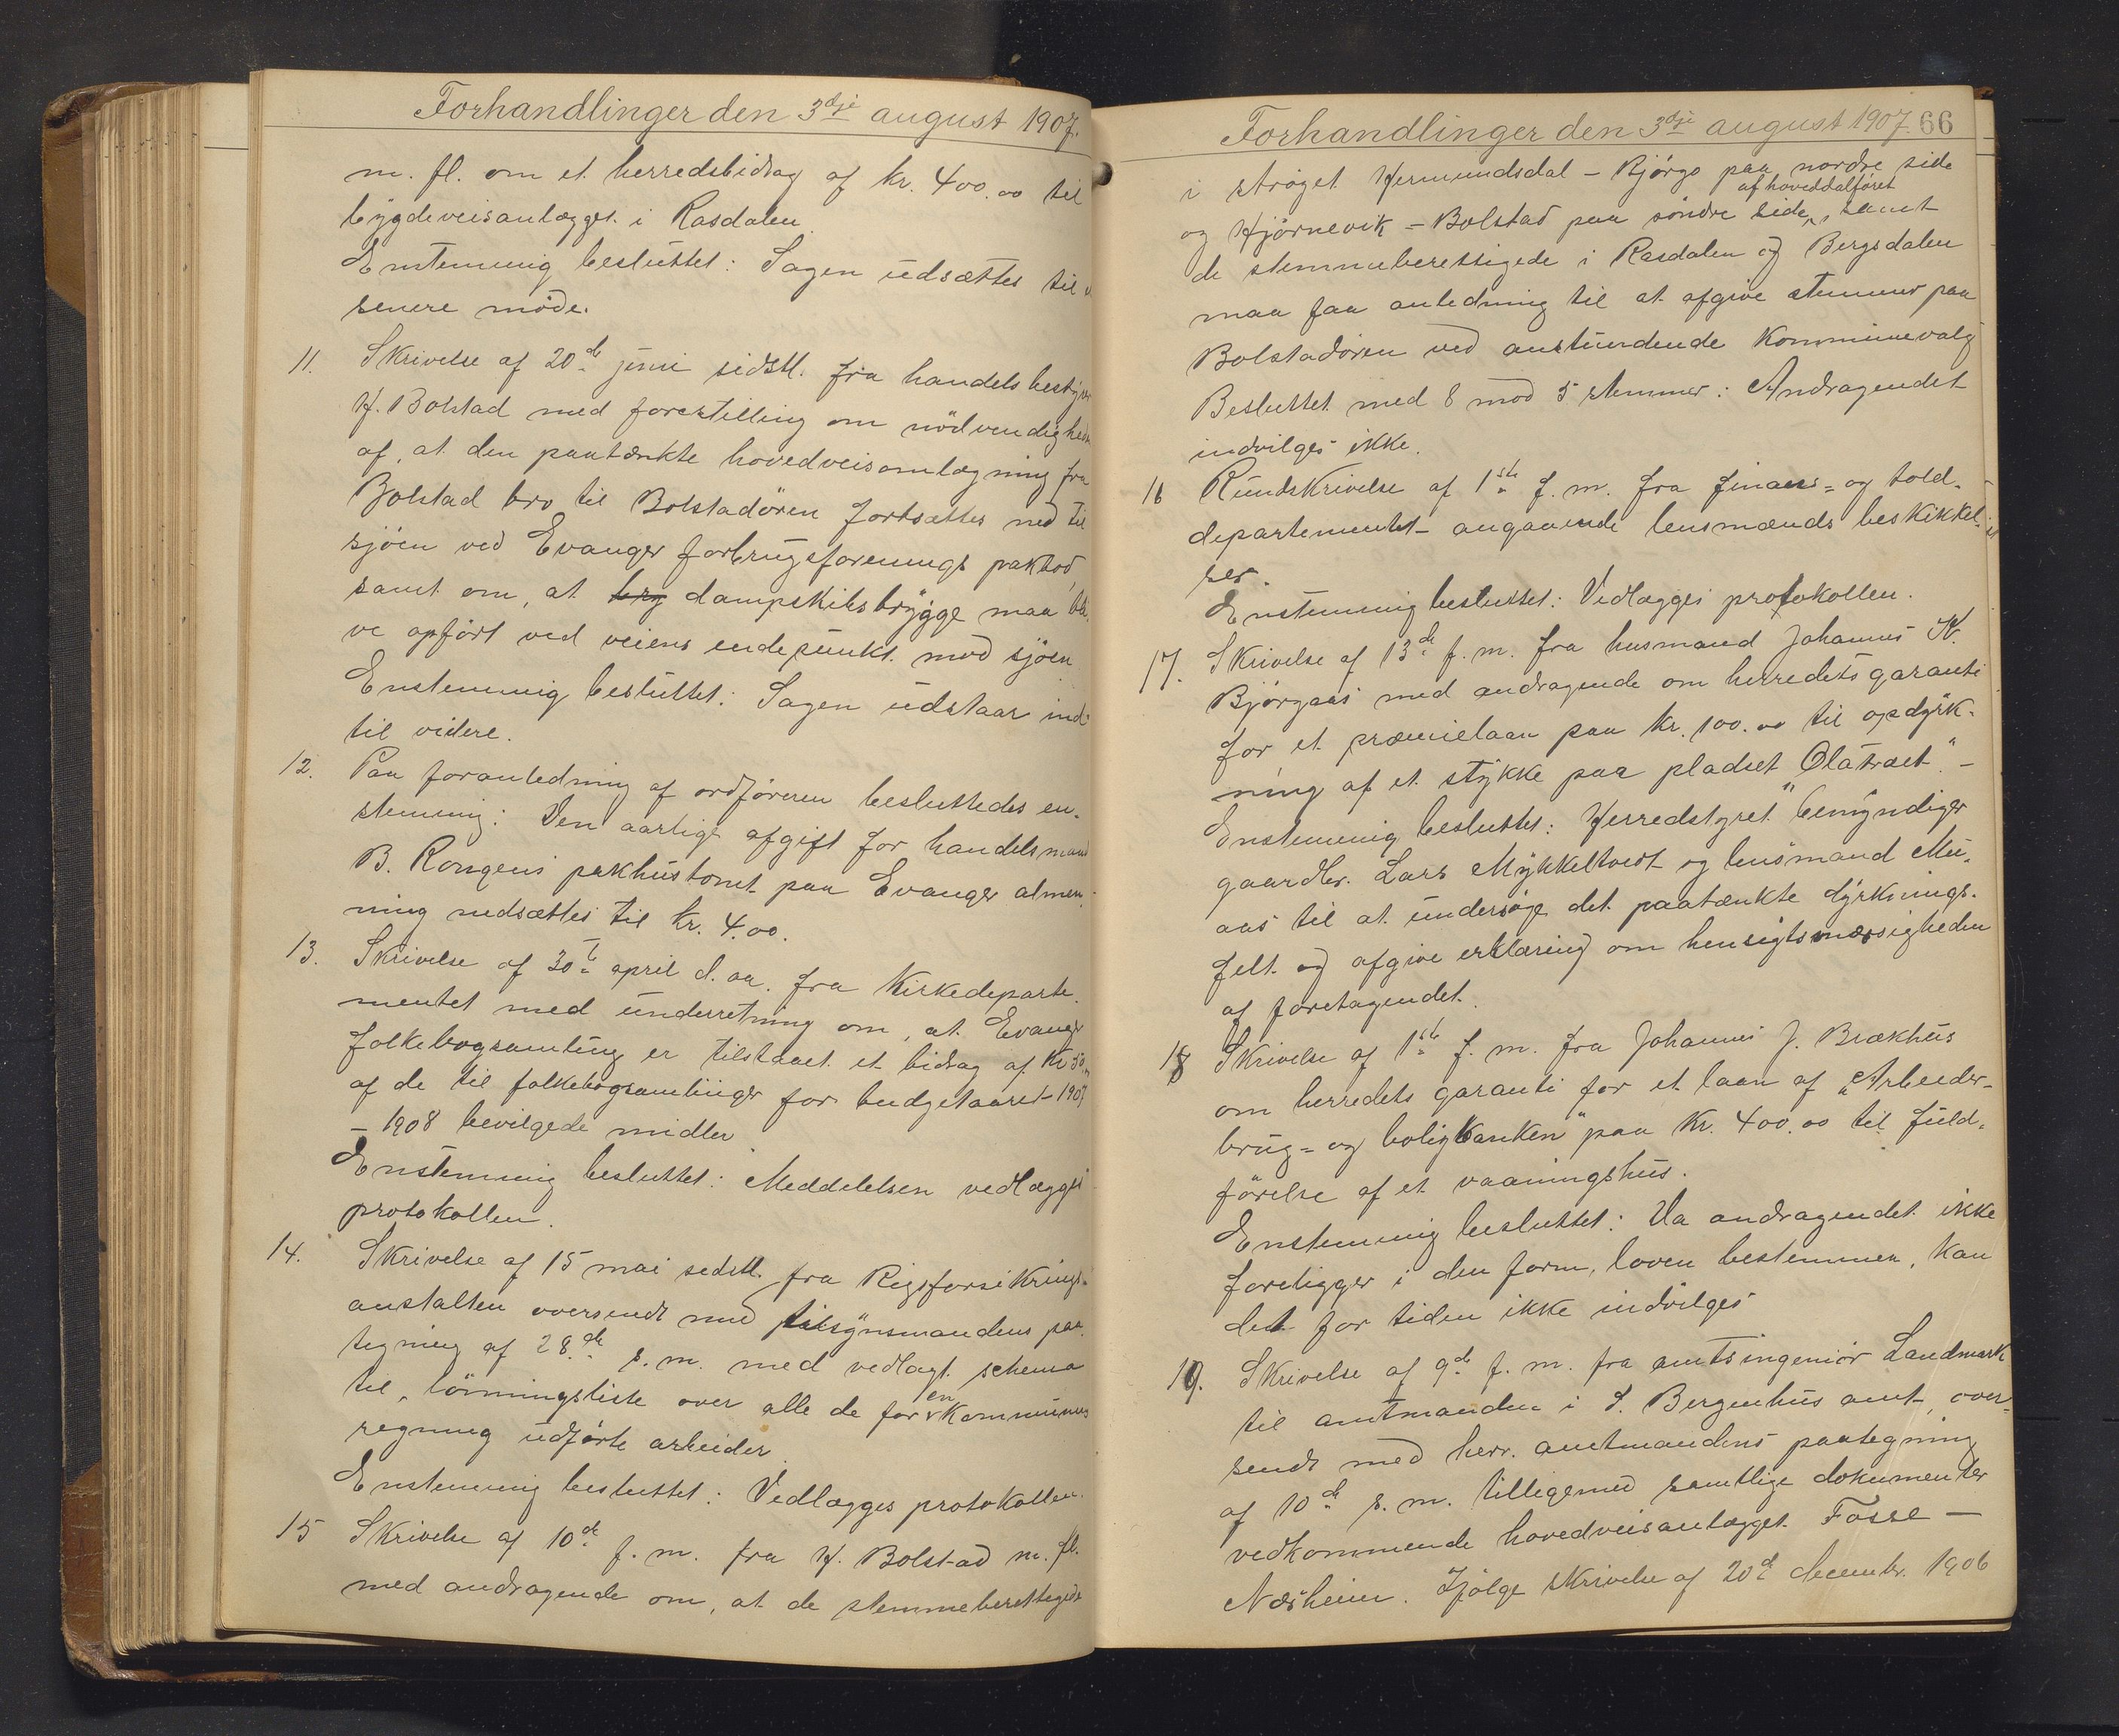 Forhandlinger den 3dje august 1907.
m. fl. om et herredsbidrag af kr. 400.00 til
bygdeveisanlægget i Rasdalen.
Enstemmig besluttet: Sagen udsættes til
senere møde.
11. Skrivelse af 20de juni sidstl. fra handelsbestyrer
H. Bolstad med forestilling om nödvendigheden
af, at den paatænkte hovedveisomlægning fra
Bolstad bro til Bolstadören fortsættes ned til
sjöen ved Evanger forbrugsforenings pakbod,
samt om, at bry dampskibsbrygge maa bli-
ve opfört ved veiens endepunkt mod sjöen.
Enstemmig besluttet: Sagen udstaar ind-
til videre.
12. Paa foranledning af ordföreren besluttedes en-
stemmig: Den aarlige afgift for handelsmand
B. Rongens pakhustomt paa Evanger almen-
ning nedsættes til kr. 4.00.
13. Skrivelse af 30te april d. aa. fra Kirkedeparte-
mentet med underretning om, at Evanger
folkebogsamling er tilstaaet et bidrag af kr 50.00
af de til folkebogsamlinger for budgetaaret 1907
– 1908 bevilgede midler.
Enstemmig besluttet: Meddelelsen vedlægges
protokollen.
14. Skrivelse af 15 mai sidstl. fra Rigsforsikrings-
anstalten oversendt med tilsynsmandens paa-
tegning af 28de s. m. med vedlagt schema
til lönningsliste over alle de for en kommunes
regning udförte arbeider.
Enstemmig besluttet: Vedlægges protokollen.
15 Skrivelse af 10de f. m. fra H. Bolstad m. fl.
med andragende om, at de stemmeberettigede
Forhandlinger den 3dje august 1907. 66
i ströget Hermundsdal – Bjørgo paa nordre side
og Hjörnevik – Bolstad paa söndre side af hoveddalföret, samt
de stemmeberettigede i Rasdalen og Bergsdalen
maa faa anledning til at afgive stemmer paa
Bolstadören ved anstundende kommunevalg
Besluttet med 8 mod 5 stemmer: Andragendet
indvilges ikke.
16 Rundskrivelse af 1ste f. m. fra finans- og told-
departementet angaaende lensmænds beskikkel-
ser.
Enstemmig besluttet: Vedlægges protokollen.
17. Skrivelse af 13de f. m. fra husmand Johannes K.
Bjørgaas med andragende om herredets garanti
for et præmielaan paa kr. 100.00 til opdyrk-
ning af et stykke paa pladset "Olatræet". –
Enstemmig besluttet: Herredstyret bemyndiger
gaardbr. Lars Mykkeltvedt og lensmand Mu-
aas til at undersöge det paatænkte dyrknings-
felt og afgive erklæring om hensigtsmæssigheden
af foretagendet.
18 Skrivelse af 1ste f. m. fra Johannes J. Brækhus
om herredets garanti for et laan af "Arbeider-
brug- og boligbanken" paa kr. 400.00 til fuld-
förelse af et vaaningshus.
Enstemmig besluttet: Da andragendet ikke
foreligger i den form, loven bestemmer, kan
det for tiden ikke indvilges
19. Skrivelse af 9de f. m. fra amtsingeniör Landmark
til amtmanden i S. Bergenhus amt, over-
sendt med herr. amtmandens paategning
af 10de s. m. tilligemed samtlige dokumenter
vedkommende hovedveisanlægget Fosse –
Næsheim. Ifölge skrivelse af 20de decembr. 1906